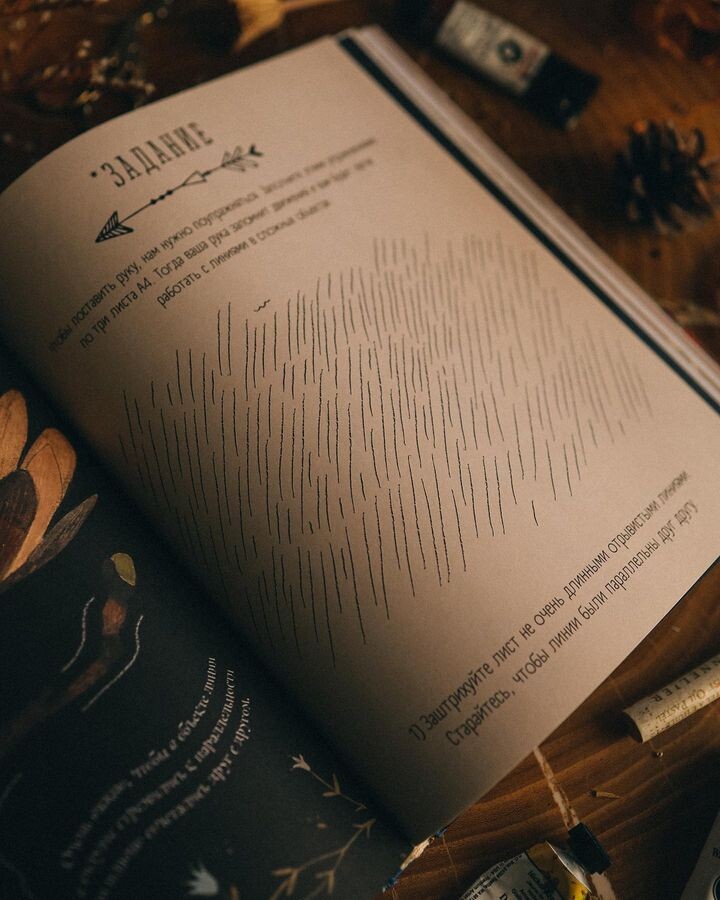 *ЗАДАНИЕ
Чтобы поставить руку, нам нужно поупражняться. Заполните этими упражнениями
по три листа А4. Тогда ваша рука запомнит движения и вам будет легче
работать с линиями в сложных объектах
1) Заштрихуйте лист не очень длинными отрывистыми линиями
Старайтесь, чтобы линии были параллельны друг другу
чтобы в объекте линии
с параллельности
сочетались друг с другом.
OIL PASTEL